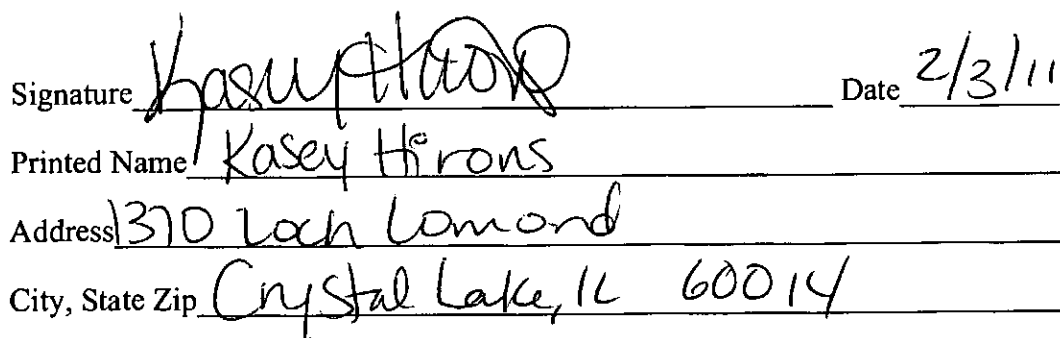 Signature Kasey Hirons Date 2/3/11
Printed Name Kasey Hirons
Address 1370 Loch Lomond
City, State Zip Crystal Lake, IL 60014